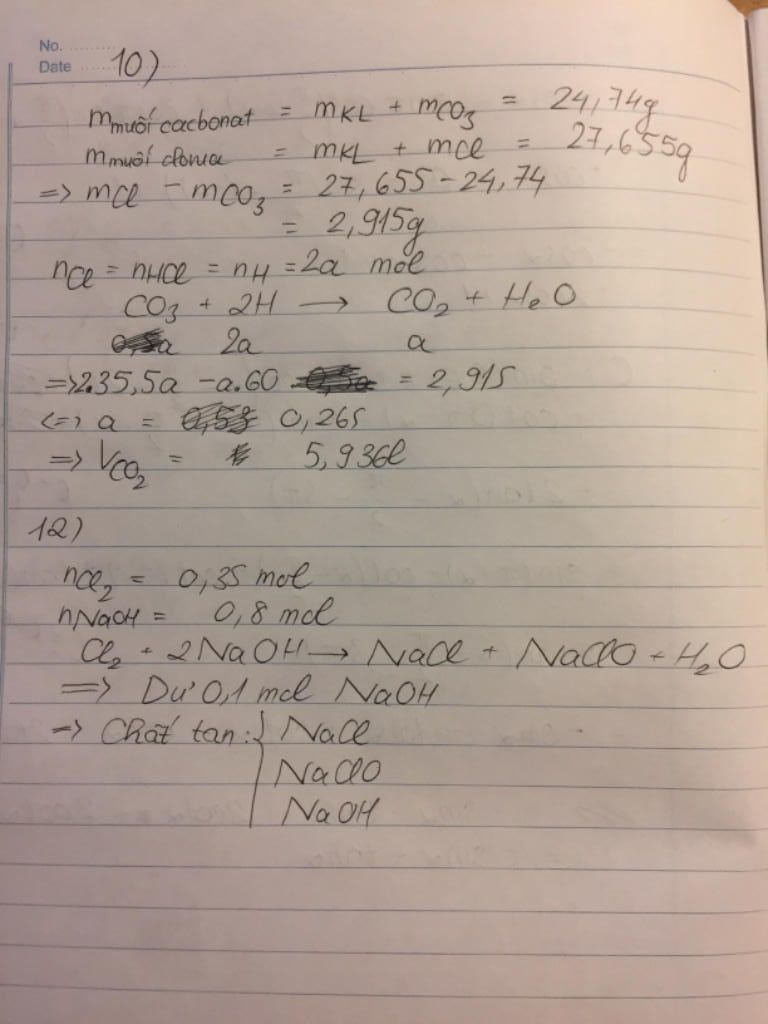 No. ...........
Date ........... 10)
m muối cacbonat = mKL + mCO₃ = 24,74g
m muối clorua = mKL + mCl = 27,655g
=> mCl - mCO₃ = 27,655 - 24,74
= 2,915g
nCl = nHCl = nH = 2a mol
CO₃ + 2H → CO₂ + H₂O
2a a
=> 2.35,5a - a.60 = 2,915
<=> a = 0,265
=> VCO₂ = 5,936l
12)
nCl₂ = 0,35 mol
nNaOH = 0,8 mol
Cl₂ + 2NaOH → NaCl + NaClO + H₂O
=> Dư 0,1 mol NaOH
=> Chất tan: { NaCl
NaClO
NaOH